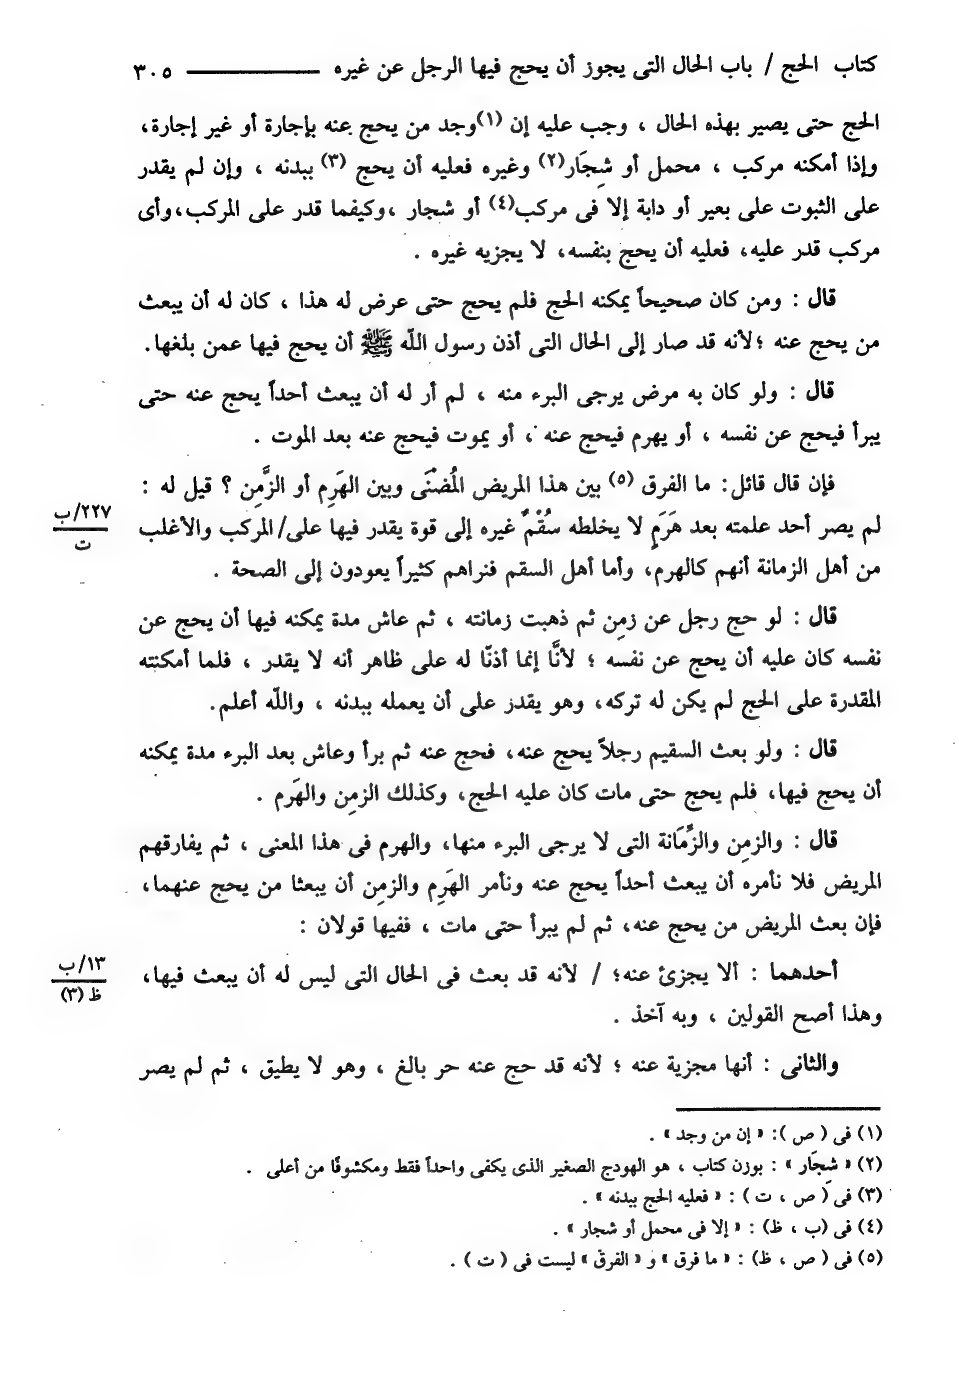 كتاب الحج / باب الحال التى يجوز أن يحج فيها الرجل عن غيره ــــــــــــ ٣٠٥
الحج حتى يصير بهذه الحال ، وجب عليه إن (١)وجد من يحج عنه بإجارة أو غير إجارة،
وإذا أمكنه مركب ، محمل أو شِجَار(٢) وغيره فعليه أن يحج (٣) ببدنه ، وإن لم يقدر
على الثبوت على بعير أو دابة إلا فى مركب(٤) أو شجار ،وكيفما قدر على المركب،وأى
مركب قدر عليه، فعليه أن يحج بنفسه، لا يجزيه غيره .
قال : ومن كان صحيحاً يمكنه الحج فلم يحج حتى عرض له هذا ، كان له أن يبعث
من يحج عنه ؛لأنه قد صار إلى الحال التى أذن رسول اللّه ﷺ أن يحج فيها عمن بلغها.
قال : ولو كان به مرض يرجى البرء منه ، لم أر له أن يبعث أحداً يحج عنه حتى
يبرأ فيحج عن نفسه ، أو يهرم فيحج عنه ، أو يموت فيحج عنه بعد الموت .
فإن قال قائل: ما الفرق (٥) بين هذا المريض المُضْنَى وبين الهَرِم أو الزَّمِن ؟ قيل له :
لم يصر أحد علمته بعد هَرَمٍ لا يخلطه سُقْمٌ غيره إلى قوة يقدر فيها على/ المركب والأغلب
٢٢٧/ب
ت
من أهل الزمانة أنهم كالهرم، وأما أهل السقم فنراهم كثيراً يعودون إلى الصحة .
قال : لو حج رجل عن زمِن ثم ذهبت زمانته ، ثم عاش مدة يمكنه فيها أن يحج عن
نفسه كان عليه أن يحج عن نفسه ؛ لأنَّا إنما أذنّا له على ظاهر أنه لا يقدر ، فلما أمكنته
المقدرة على الحج لم يكن له تركه، وهو يقدر على أن يعمله ببدنه ، واللّه أعلم.
قال : ولو بعث السقيم رجلاً يحج عنه، فحج عنه ثم برأ وعاش بعد البرء مدة يمكنه
أن يحج فيها، فلم يحج حتى مات كان عليه الحج، وكذلك الزمِن والهَرم .
قال : والزمِن والزَّمَانة التى لا يرجى البرء منها، والهرم فى هذا المعنى ، ثم يفارقهم
المريض فلا نأمره أن يبعث أحداً يحج عنه ونأمر الهَرِم والزمِن أن يبعثا من يحج عنهما،
فإن بعث المريض من يحج عنه، ثم لم يبرأ حتى مات ، ففيها قولان :
أحدهما : ألا يجزئ عنه؛ / لأنه قد بعث فى الحال التى ليس له أن يبعث فيها،
١٣/ب
ظ (٣)
وهذا أصح القولين ، وبه آخذ .
والثانى : أنها مجزية عنه ؛ لأنه قد حج عنه حر بالغ ، وهو لا يطيق ، ثم لم يصر
(١) فى ( ص ): « إن من وجد » .
(٢) « شِجَار » : بوزن كتاب ، هو الهودج الصغير الذى يكفى واحداً فقط ومكشوفًا من أعلى .
(٣) فى ( ص ، ت ) : « فعليه الحج ببدنه » .
(٤) فى (ب ، ظ) : « إلا فى محمل أو شجار » .
(٥) فى ( ص ، ظ) : « ما فرق » و « الفرق » ليست فى ( ت ) .